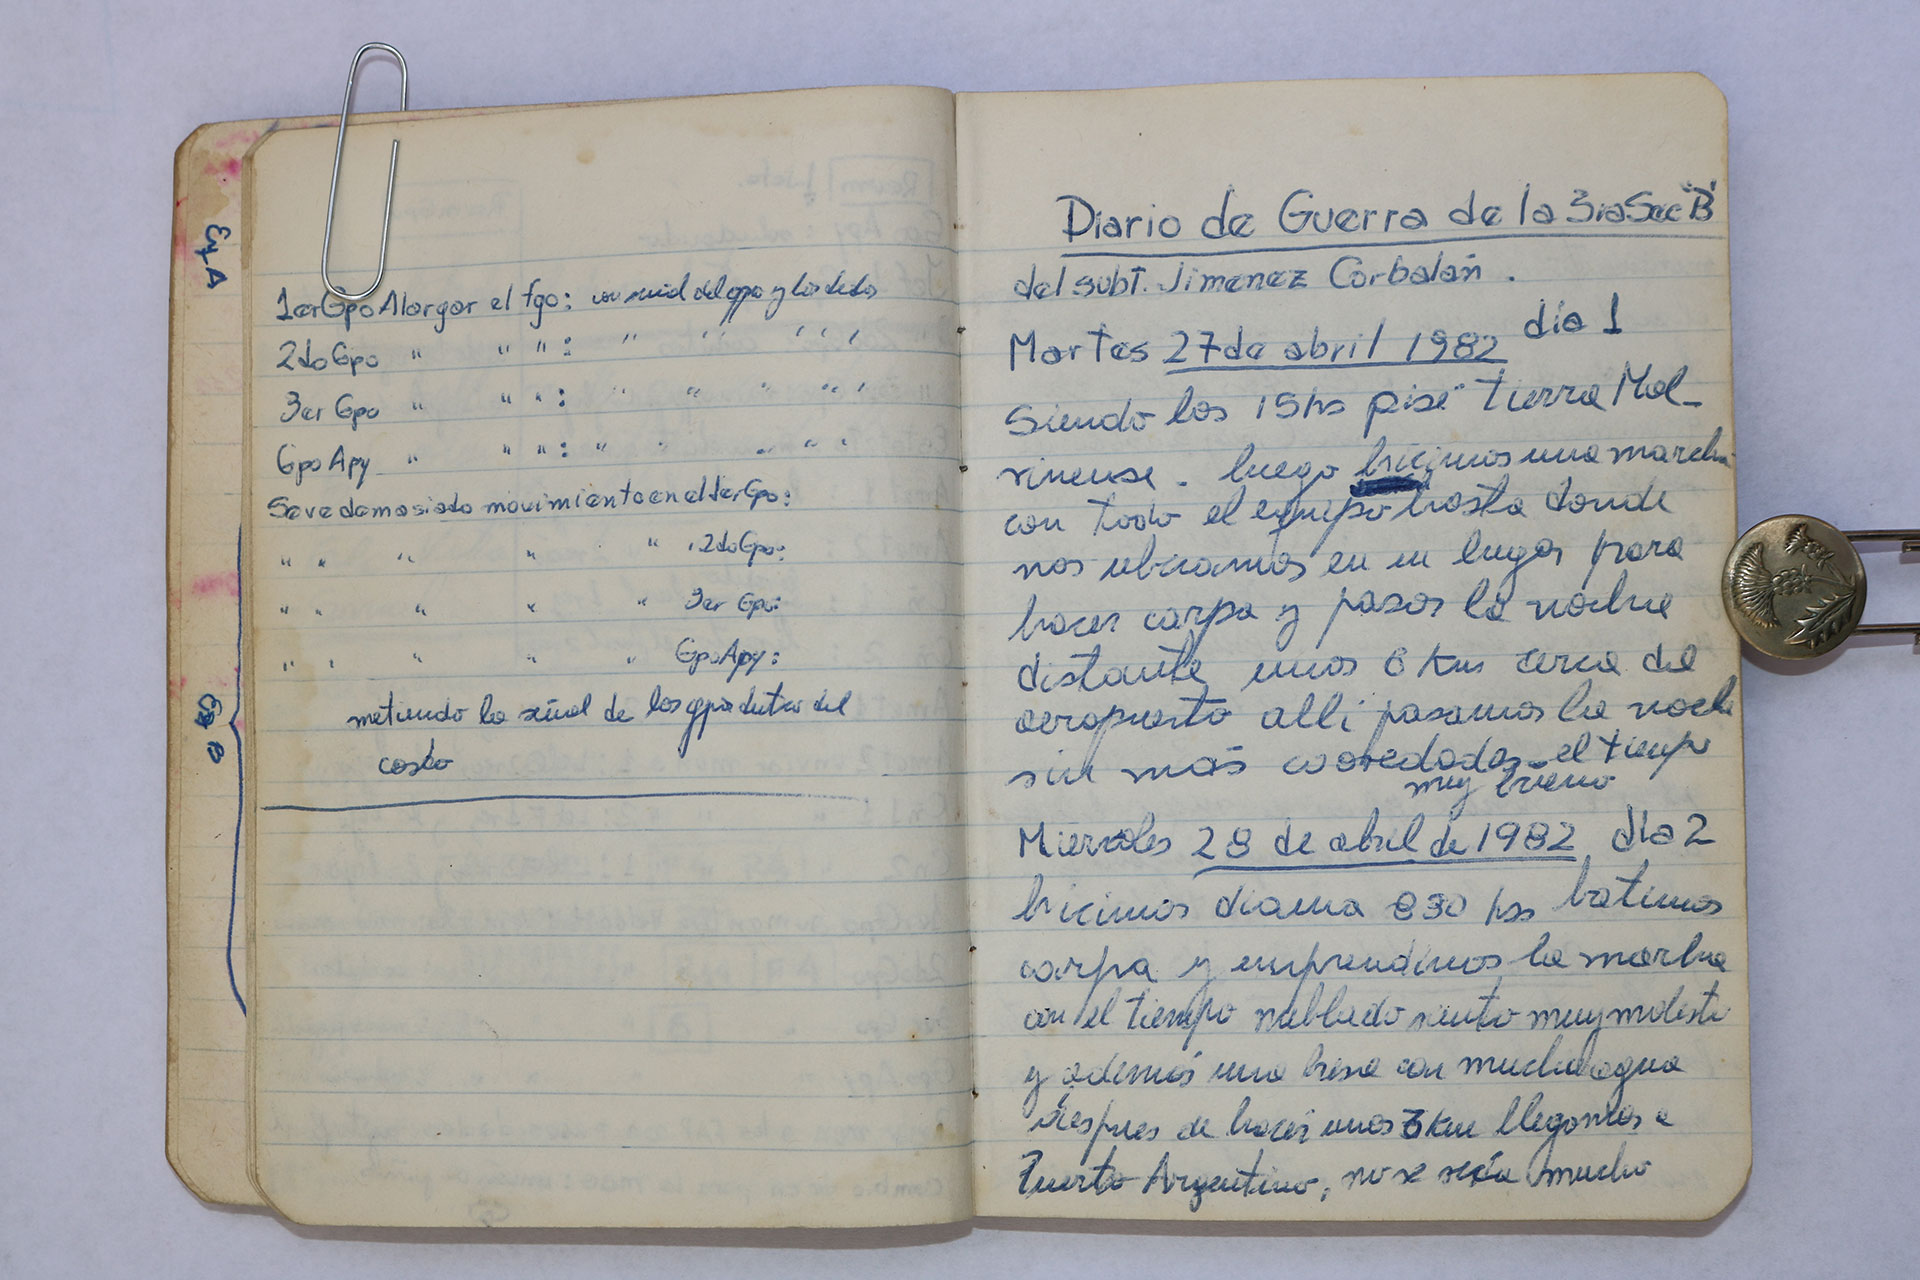 Ey A
1erGpo Alargar el fgo: con señal del gpo y los dedos
2do Gpo " " " : " " " " "
3er Gpo " " " : " " " " "
Gpo Apy " " " : " " " " "
Se ve demasiado movimiento en el 1er Gpo:
" " " " " 2do Gpo:
" " " " " 3er Gpo:
" " " " " Gpo Apy:
metiendo la señal de los gpo dentro del
casco
Diario de Guerra de la 3ra Sec "B"
del subt. Jimenez Corbalán.
Martes 27 de abril 1982 día 1
Siendo las 15 hs pisé tierra Mal-
vinense. luego hicimos una marcha
con todo el equipo hasta donde
nos ubicamos en un lugar para
hacer carpa y pasar la noche
distante unos 6 km cerca del
aeropuerto allí pasamos la noche
sin más novedades - el tiempo
muy bueno
Miercoles 28 de abril de 1982 día 2
hicimos diana 830 hs batimos
carpa y emprendimos la marcha
con el tiempo nublado viento muy molesto
y además una brisa con mucha agua
despues de hacer unos 3 km llegamos a
Puerto Argentino, no se veía mucho